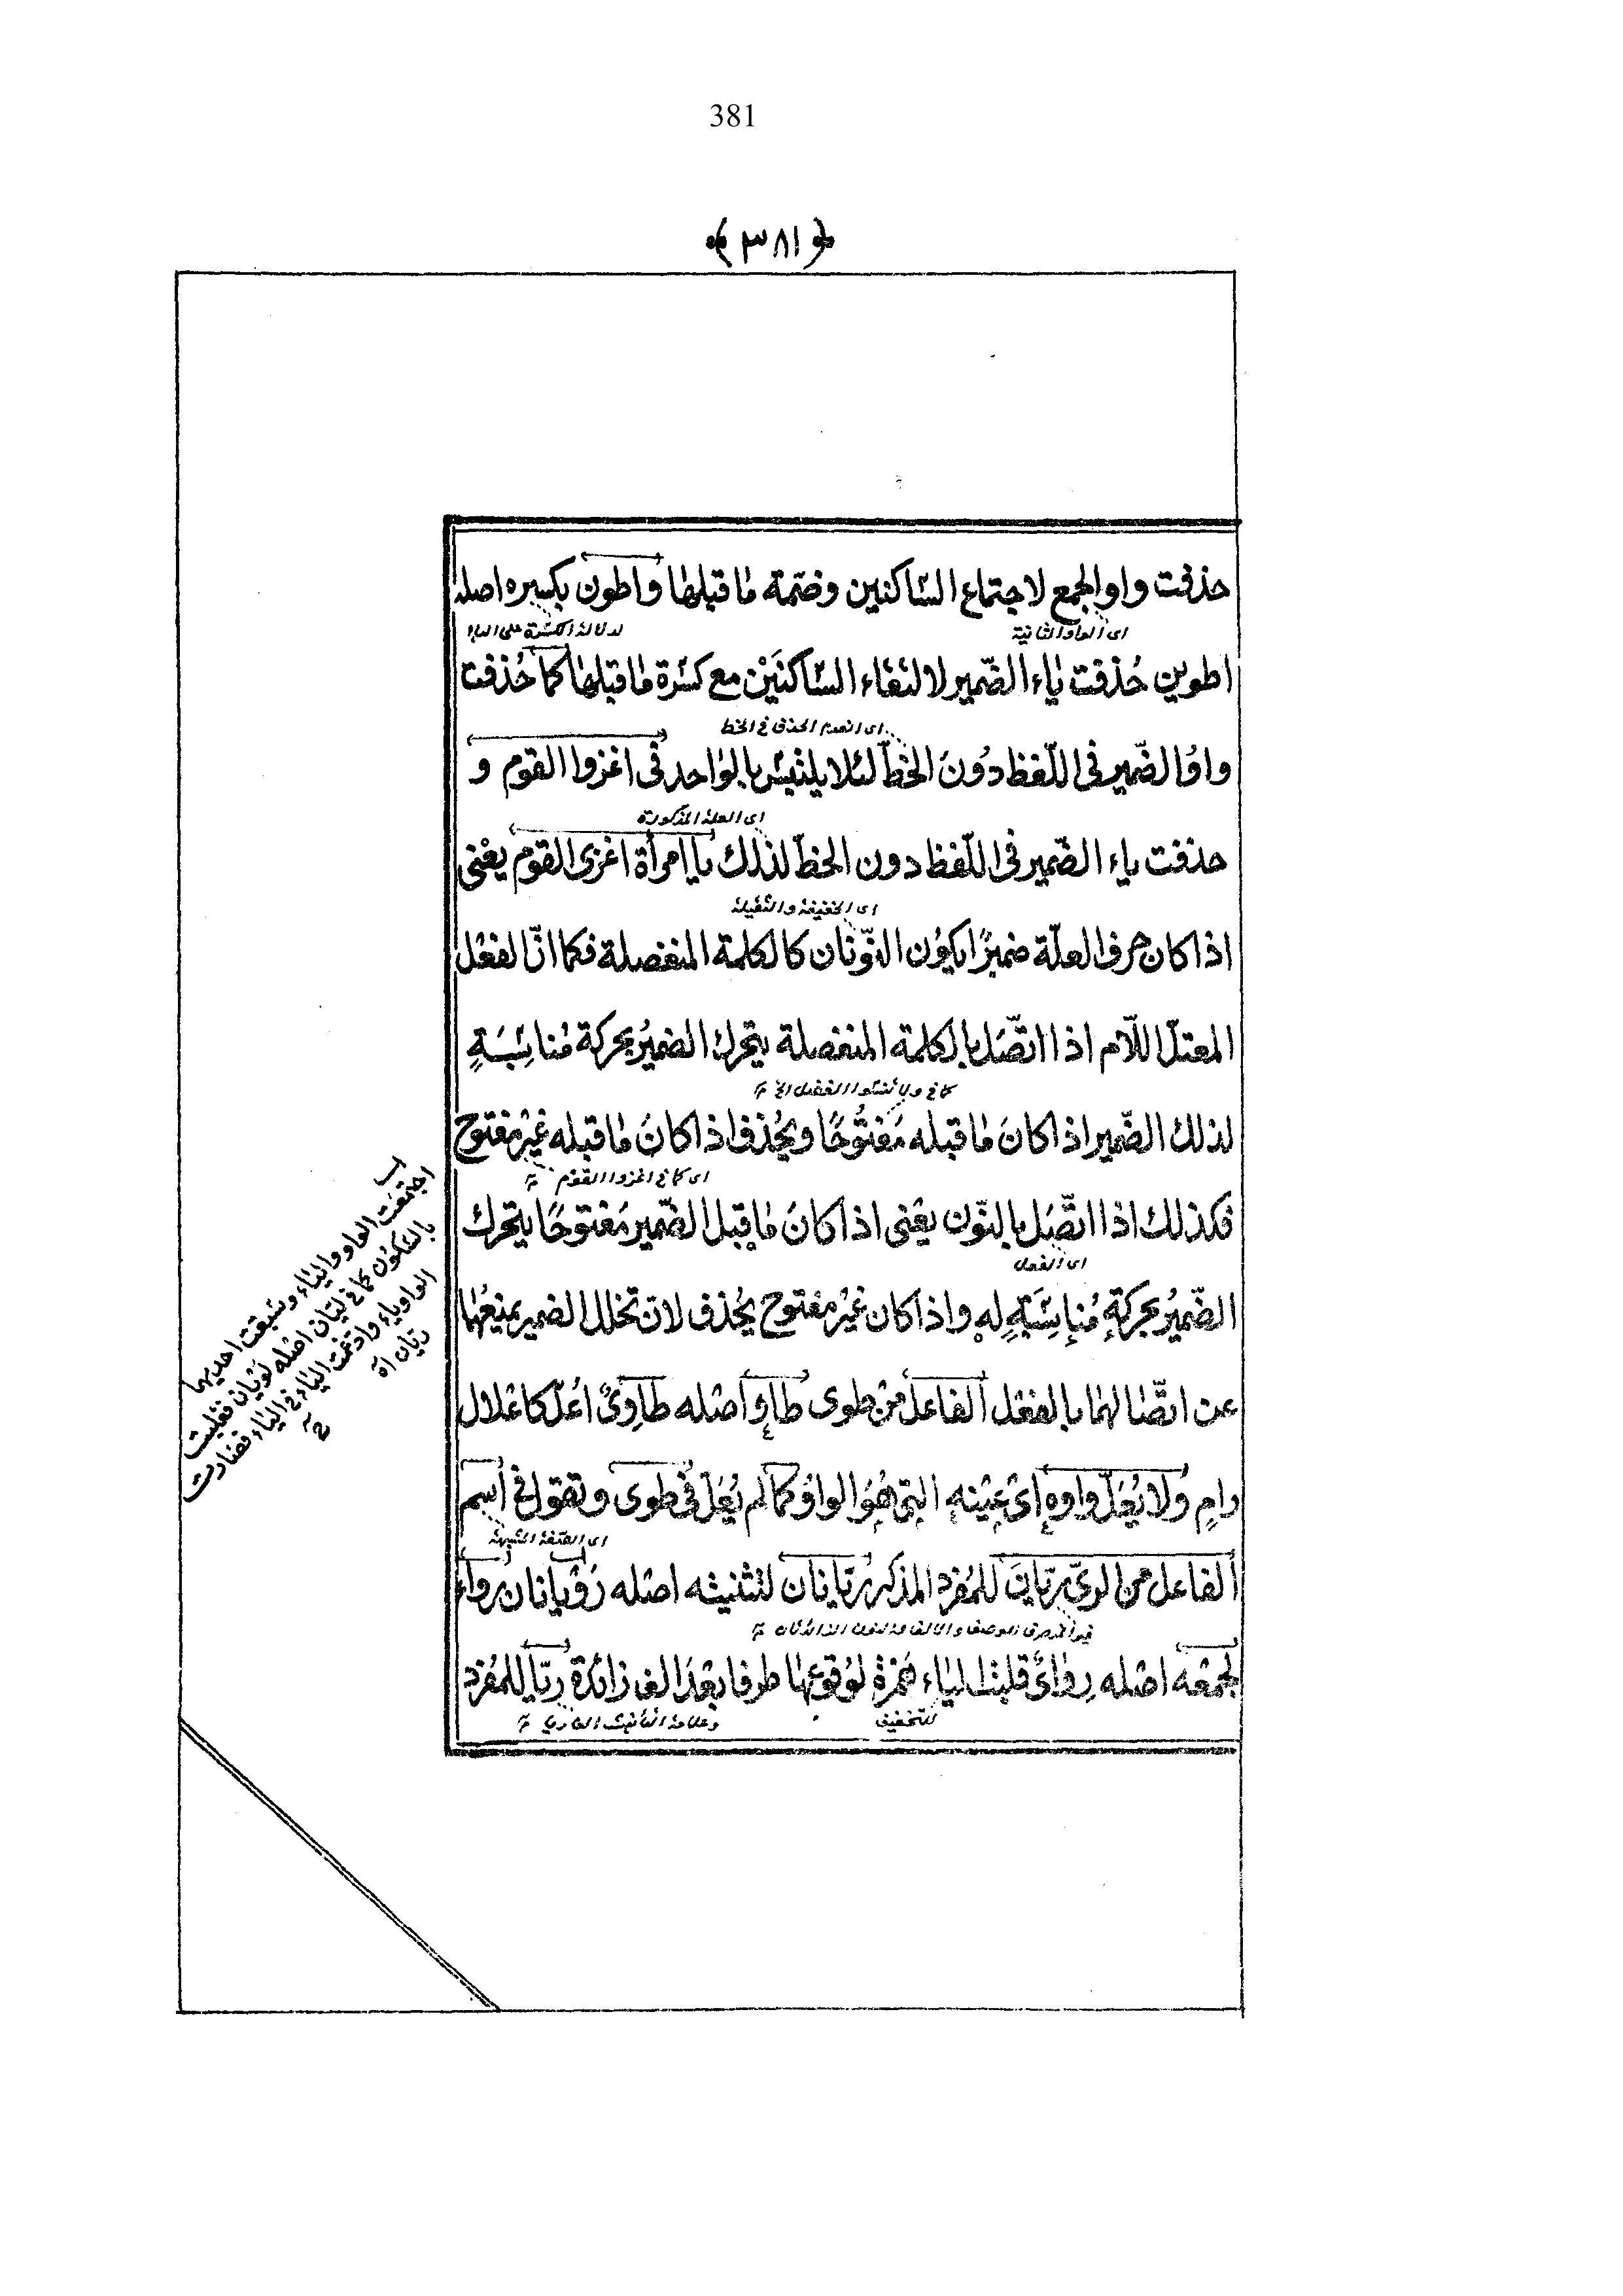 381
﴿٣٨١﴾
حذفت واو الجمع لاجتماع السّاكنين وضمّة ما قبلها واطون بكسره اصله
اى الواو الثانية
لدلالة الكسرة على الياء
اطوين حُذفت ياء الضّمير لالتقاء السّاكنَيْن مع كسرة ما قبلها كما حُذفت
اى لعدم الحذف فى الخط
واوُ الضّمير فى اللّفظ دُونَ الخطّ لئلا يلتبسَ بالواحد فى اغزوا القوم و
اى العلة المذكورة
حذفت ياء الضّمير فى اللّفظ دون الخطّ لذلك يا امرأة اغزى القوم يعْنى
اى الخفيفة والثقيلة
اذا كان حرف العلّة ضميرًا يكون النّونان كالكلمة المنفصلة فكما انّ الفعْل
المعتلّ اللّام اذا اتّصَل بالكلمة المنفصلة يتحرك الضميرُ بحركة مُناسِبَةٍ
كما فى ولا تنسَوُا الفضل الخ
لذلك الضّمير اذا كانَ ما قبله مَفتُوحًا ويُحذف اذا كانَ ما قبله غيْر مفتوح
اى كما فى اغزوا القوم
فكذلك اذا اتّصَل بالنّون يعْنى اذا كانَ ما قبل الضّمير مَفتوحًا يتحرك
اى الفعل
الضّميرُ بحركةٍ مُناسِبَةٍ له واذا كان غيْر مفتوح يُحذف لان تخلل الضمير يمنعُهَا
عن اتّصالهما بالفعْل الفاعل من طوى طاوٍ اصْله طاوِىٌ اُعلّ كاعْلال
رامٍ ولا يُعَلّ واوه اىْ عيْنه التى هُوَ الواوُ كما لم يُعَلّ فى طوى وتقول فى اسْم
اى الصّفة المشبهة
الفاعل من الرىّ ريّان للمُفرد المذكر ريّانان لتثنيته اصْله رَوْيانان رواء
فيه الوصف والالف والنون الزائدتان
لجمْعه اصْله رِواىٌ قلبت الياء همزة لوُقوعها طرفا بعْدَ الف زائدة ريّا للمُفرد
للتخفيف
وعلامة التأنيث الف
اجتمعَت الواو والياء وسبقت احديهما
بالسّكون كما فى ليّان اصْله لَوْيان فقلبت
الواو ياء وادغمت الياء فى الياء فصارت
ريّان اه